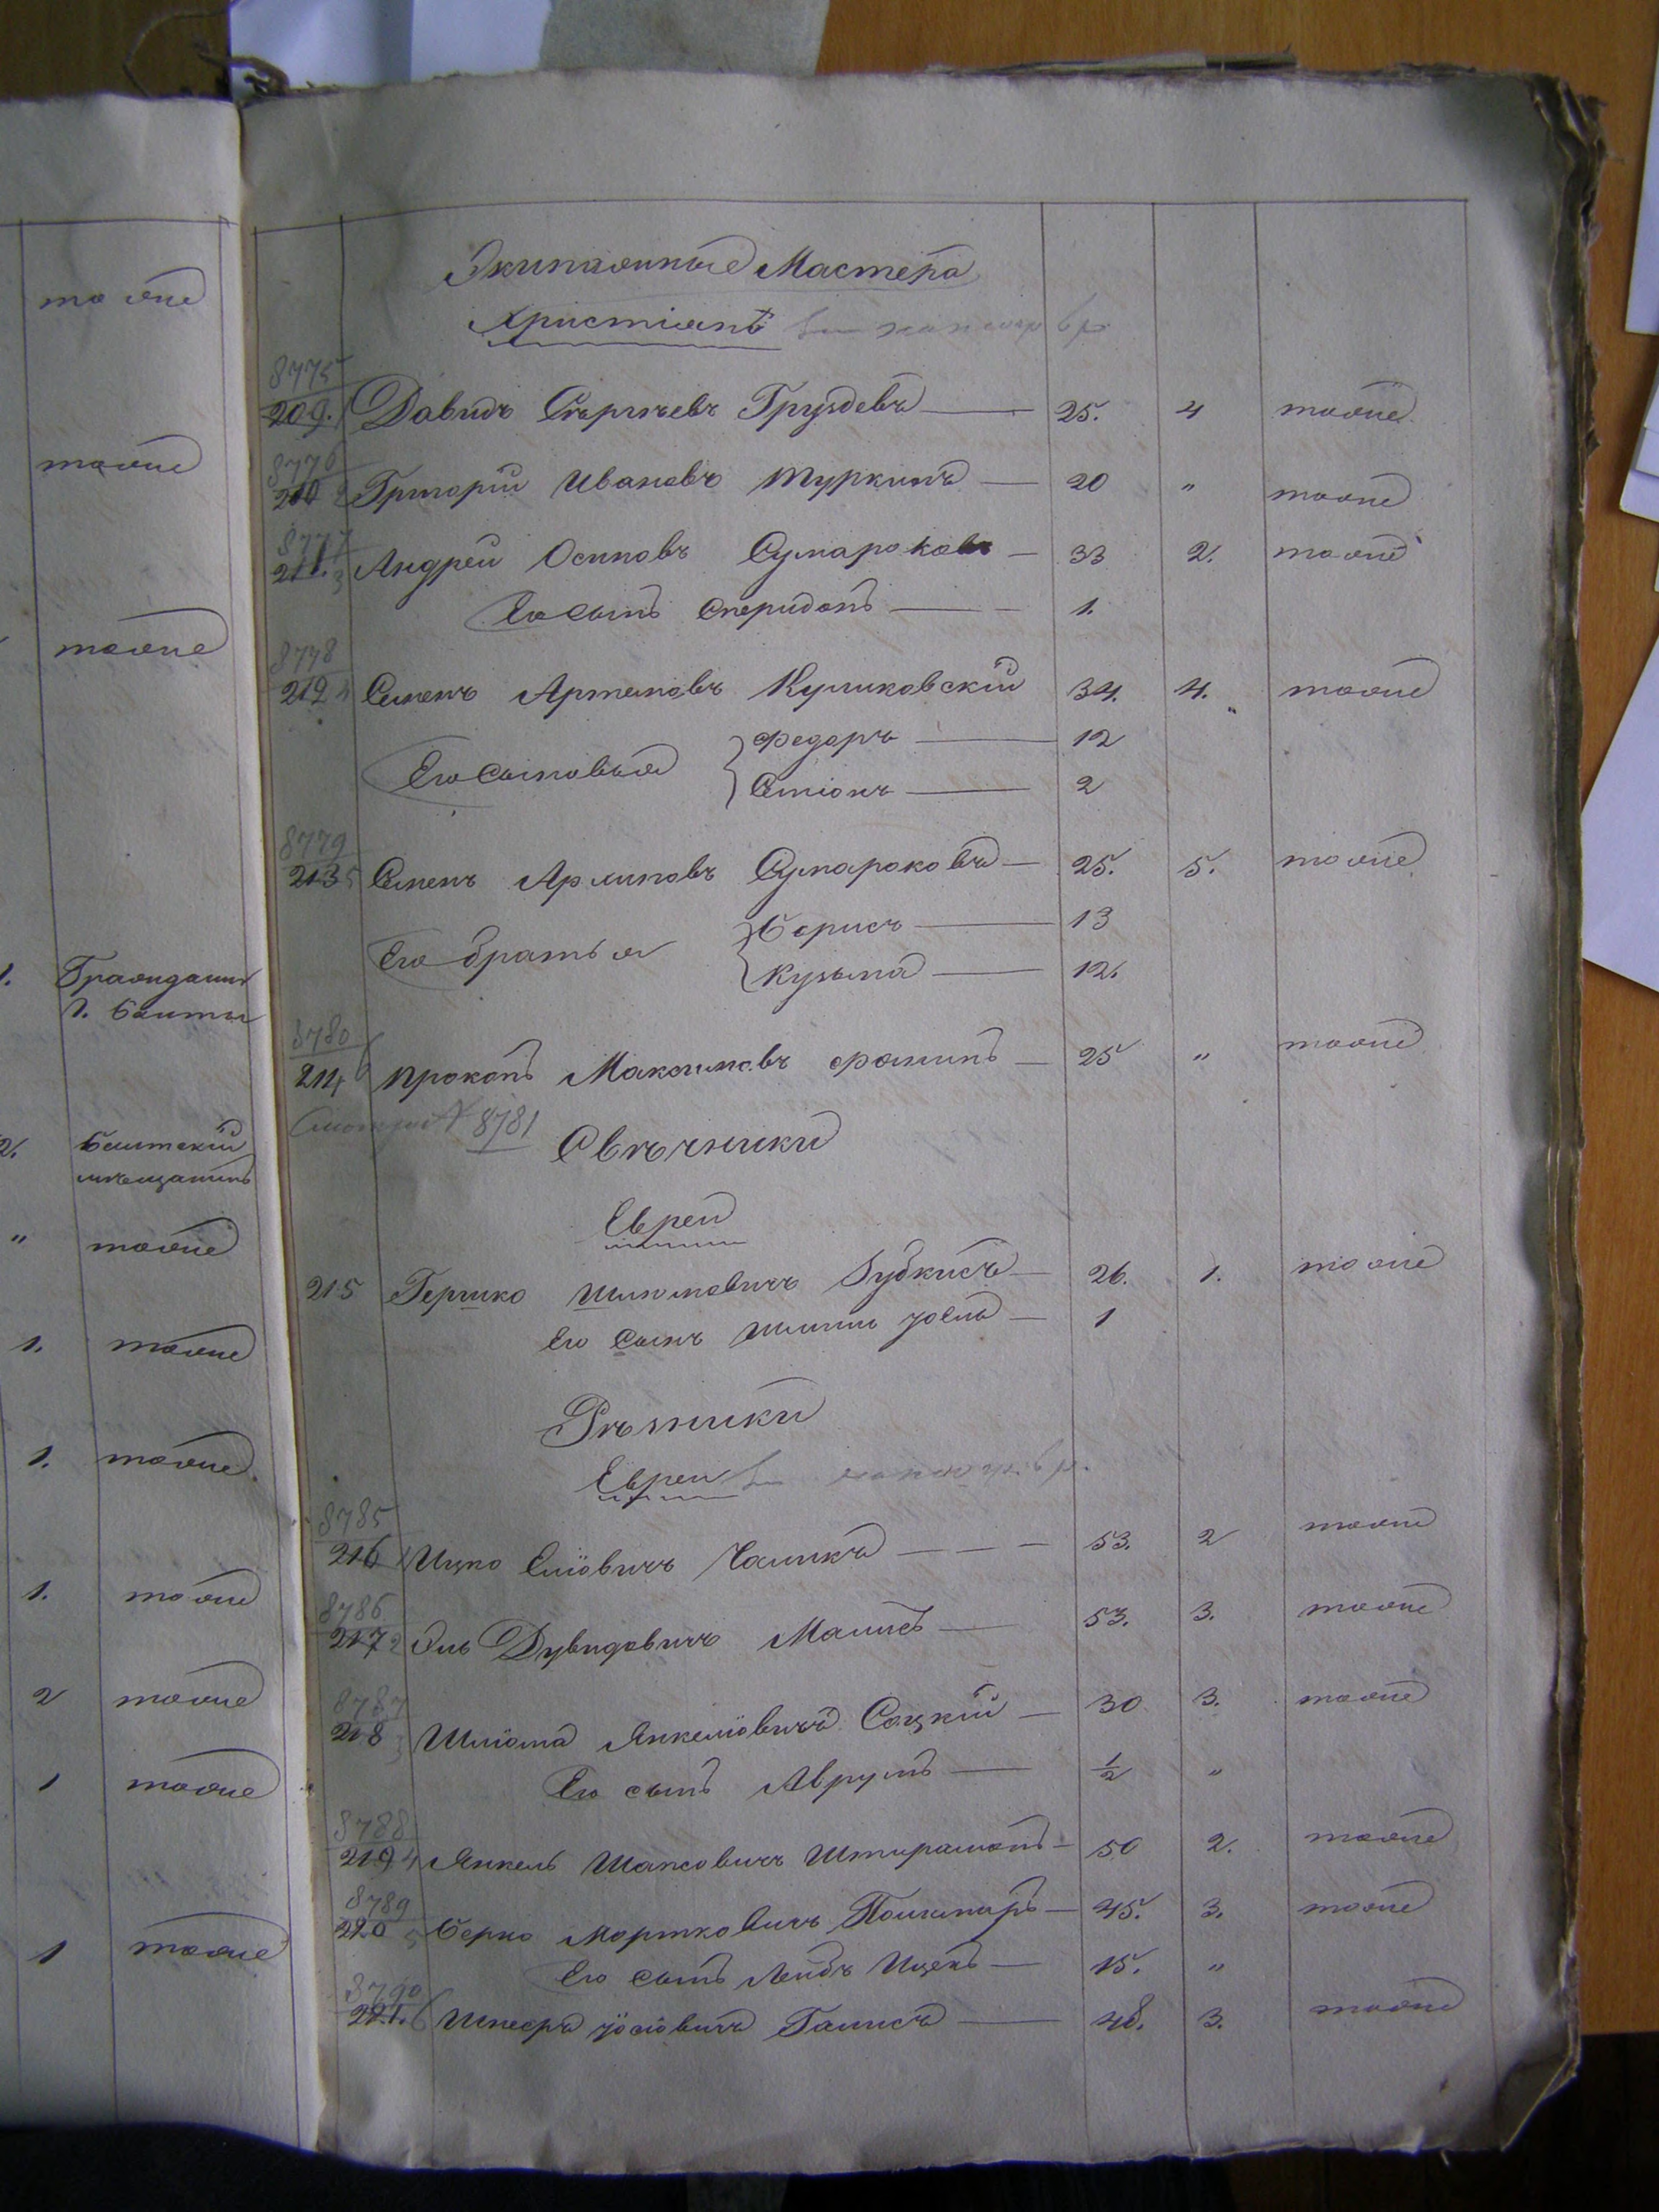 тоже
тоже
тоже
1. Гражданинъ
г. Балты
2. Балтскій
мѣщанинъ
" тоже
1. тоже
1. тоже
1. тоже
2 тоже
1 тоже
1 тоже
Экипажные Мастера
Христіанъ
8775
209. Давидъ Сергѣевъ Груздевъ 25. 4 тоже
8776
210 2 Григорій Ивановъ Туркинъ 20 " тоже
8777
211. 3 Андрей Осиповъ Сумароковъ 33 2. тоже
Его сынъ Спиридонъ 1.
8778
212 4 Семенъ Артемовъ Куликовскій 34. 4. тоже
Его сыновья { Федоръ 12
Семіонъ 2
8779
213 5 Семенъ Архиповъ Сумароковъ 25. 5. тоже
Его братья { Борисъ 13
Кузьма 12.
8780
214 6 Прокопъ Максимовъ Фоминъ 25 " тоже
Смотри № 8781
Свѣчники
Евреи
215 Гершко Шлиомовичъ Зубкисъ 26. 1. тоже
Его сынъ 1
Рѣзники
Евреи
8785
216 1 Ицко Еліовичъ Чаликъ 53. 2 тоже
8786
217 2 Эль Дувидовичъ Малисъ 53. 3. тоже
8787
218 3 Шліома Янкеліовичъ Сацкій 30 3. тоже
Его сынъ Аврумъ ½ "
8788
219 4 Янкель Шапсовичъ 50 2. тоже
8789
220 5 Берко Мортковичъ 45. 3. тоже
Его сынъ Лейбъ Ицекъ 15. "
8790
221. 6 Іосіовичъ Галисъ 48. 3. тоже